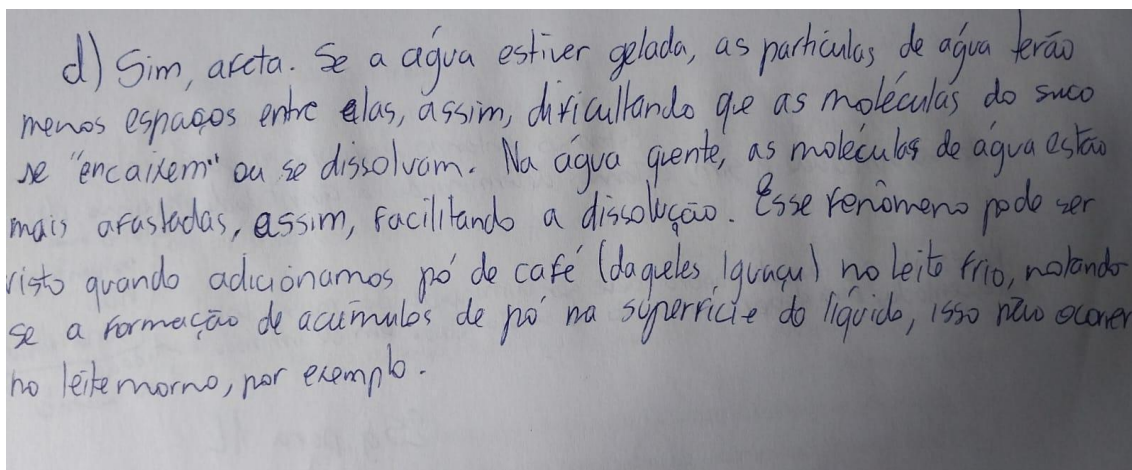 d) Sim, afeta. Se a agúva estiver gelada, as partículas de agúva terão
menos espaços entre elas, assim, dificultando que as moléculas do suco
se "encaixem" ou se dissolvam. Na água quente, as moléculas de água estão
mais afastadas, assim, facilitando a dissolução. Esse fenômeno pode ser
visto quando adicionamos pó de café (daqueles Iguaçu) no leite frio, notando
se a formação de acúmulos de pó na superfície do líquido, isso não ocorrer
no leite morno, por exemplo.